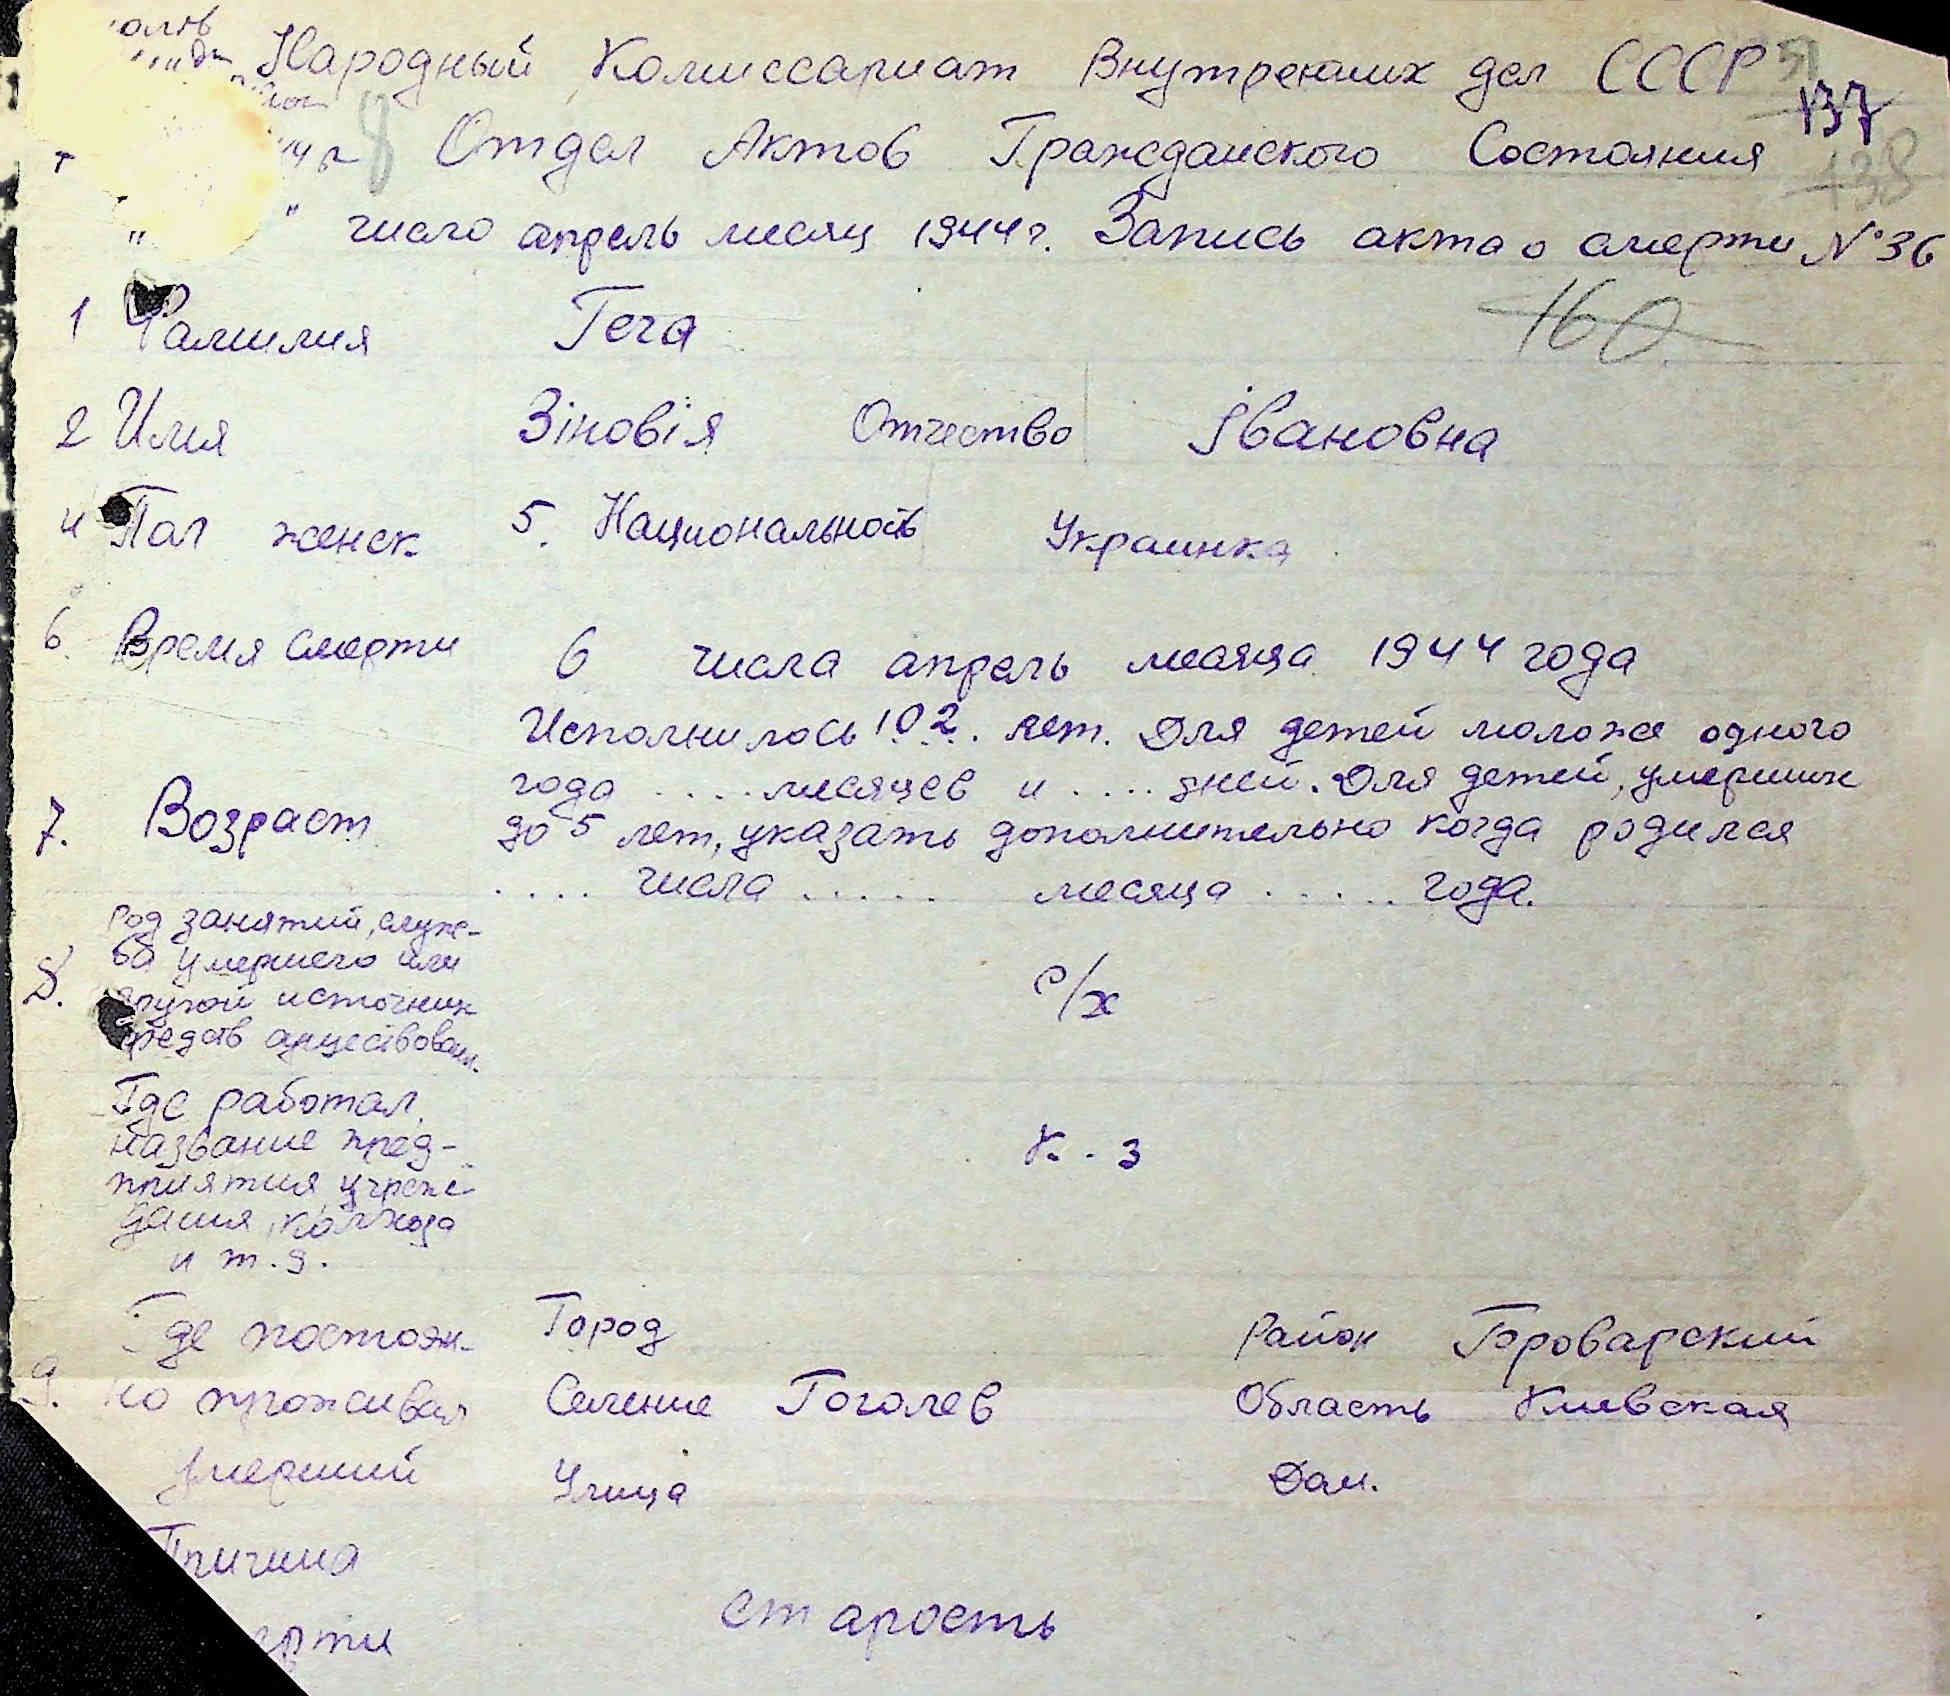 Народный Комиссариат Внутрених дел СССР 51
137
44 г 8 Отдел Актов Гражданского Состояния
138
" " число апрель месяц 1944 г. Запись акта о смерти № 36
160
1 Фамилия Гега
2 Имя Зіновія Отчество Івановна
4 Пол женск 5. Национальность Украинка
6. Время смерти 6 числа апрель месяца 1944 года
Исполнилось 102 лет. Для детей моложе одного
года .... месяцев и .... дней. Для детей, умерших
7. Возраст до 5 лет, указать дополнительно когда родился
.... числа ..... месяца ..... года.
Род занятий, служ-
ба умершего или
8. другой источник с/х
средств существован.
Где работал,
название пред- К. з
приятия, учреж
дения, колхоза
и т.д.
Где постоян- Город Район Броварский
9. но проживал Селение Гоголев Область Киевская
умерший Улица Дом.
Причина
смерти старость